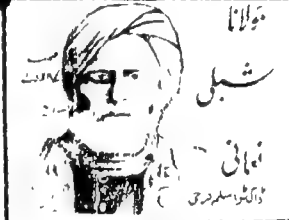 مولانا
شبلی
نعمانی
ڈاکٹر اسلم فرخی